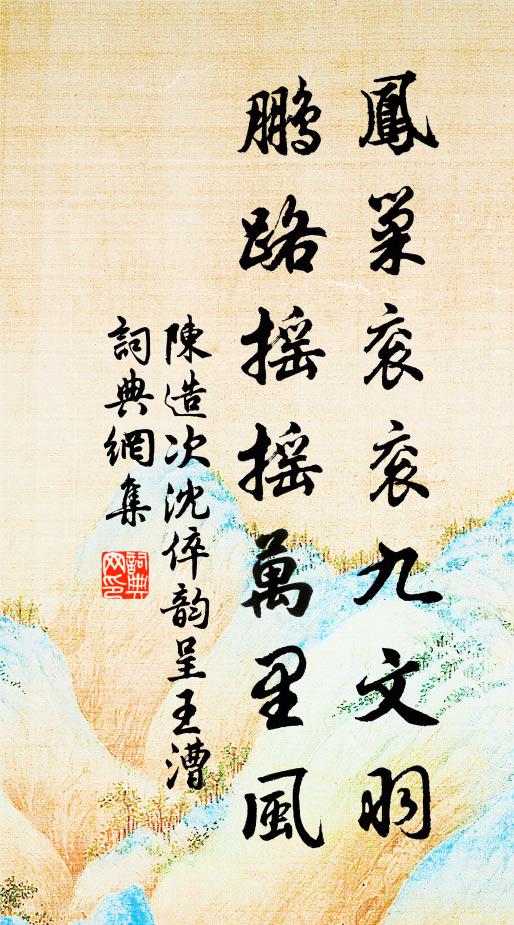 鳳巢衮衮九文羽
鵬路摇摇萬里風
陳造次沈倅韵呈王漕
詞典網集
詞典網印